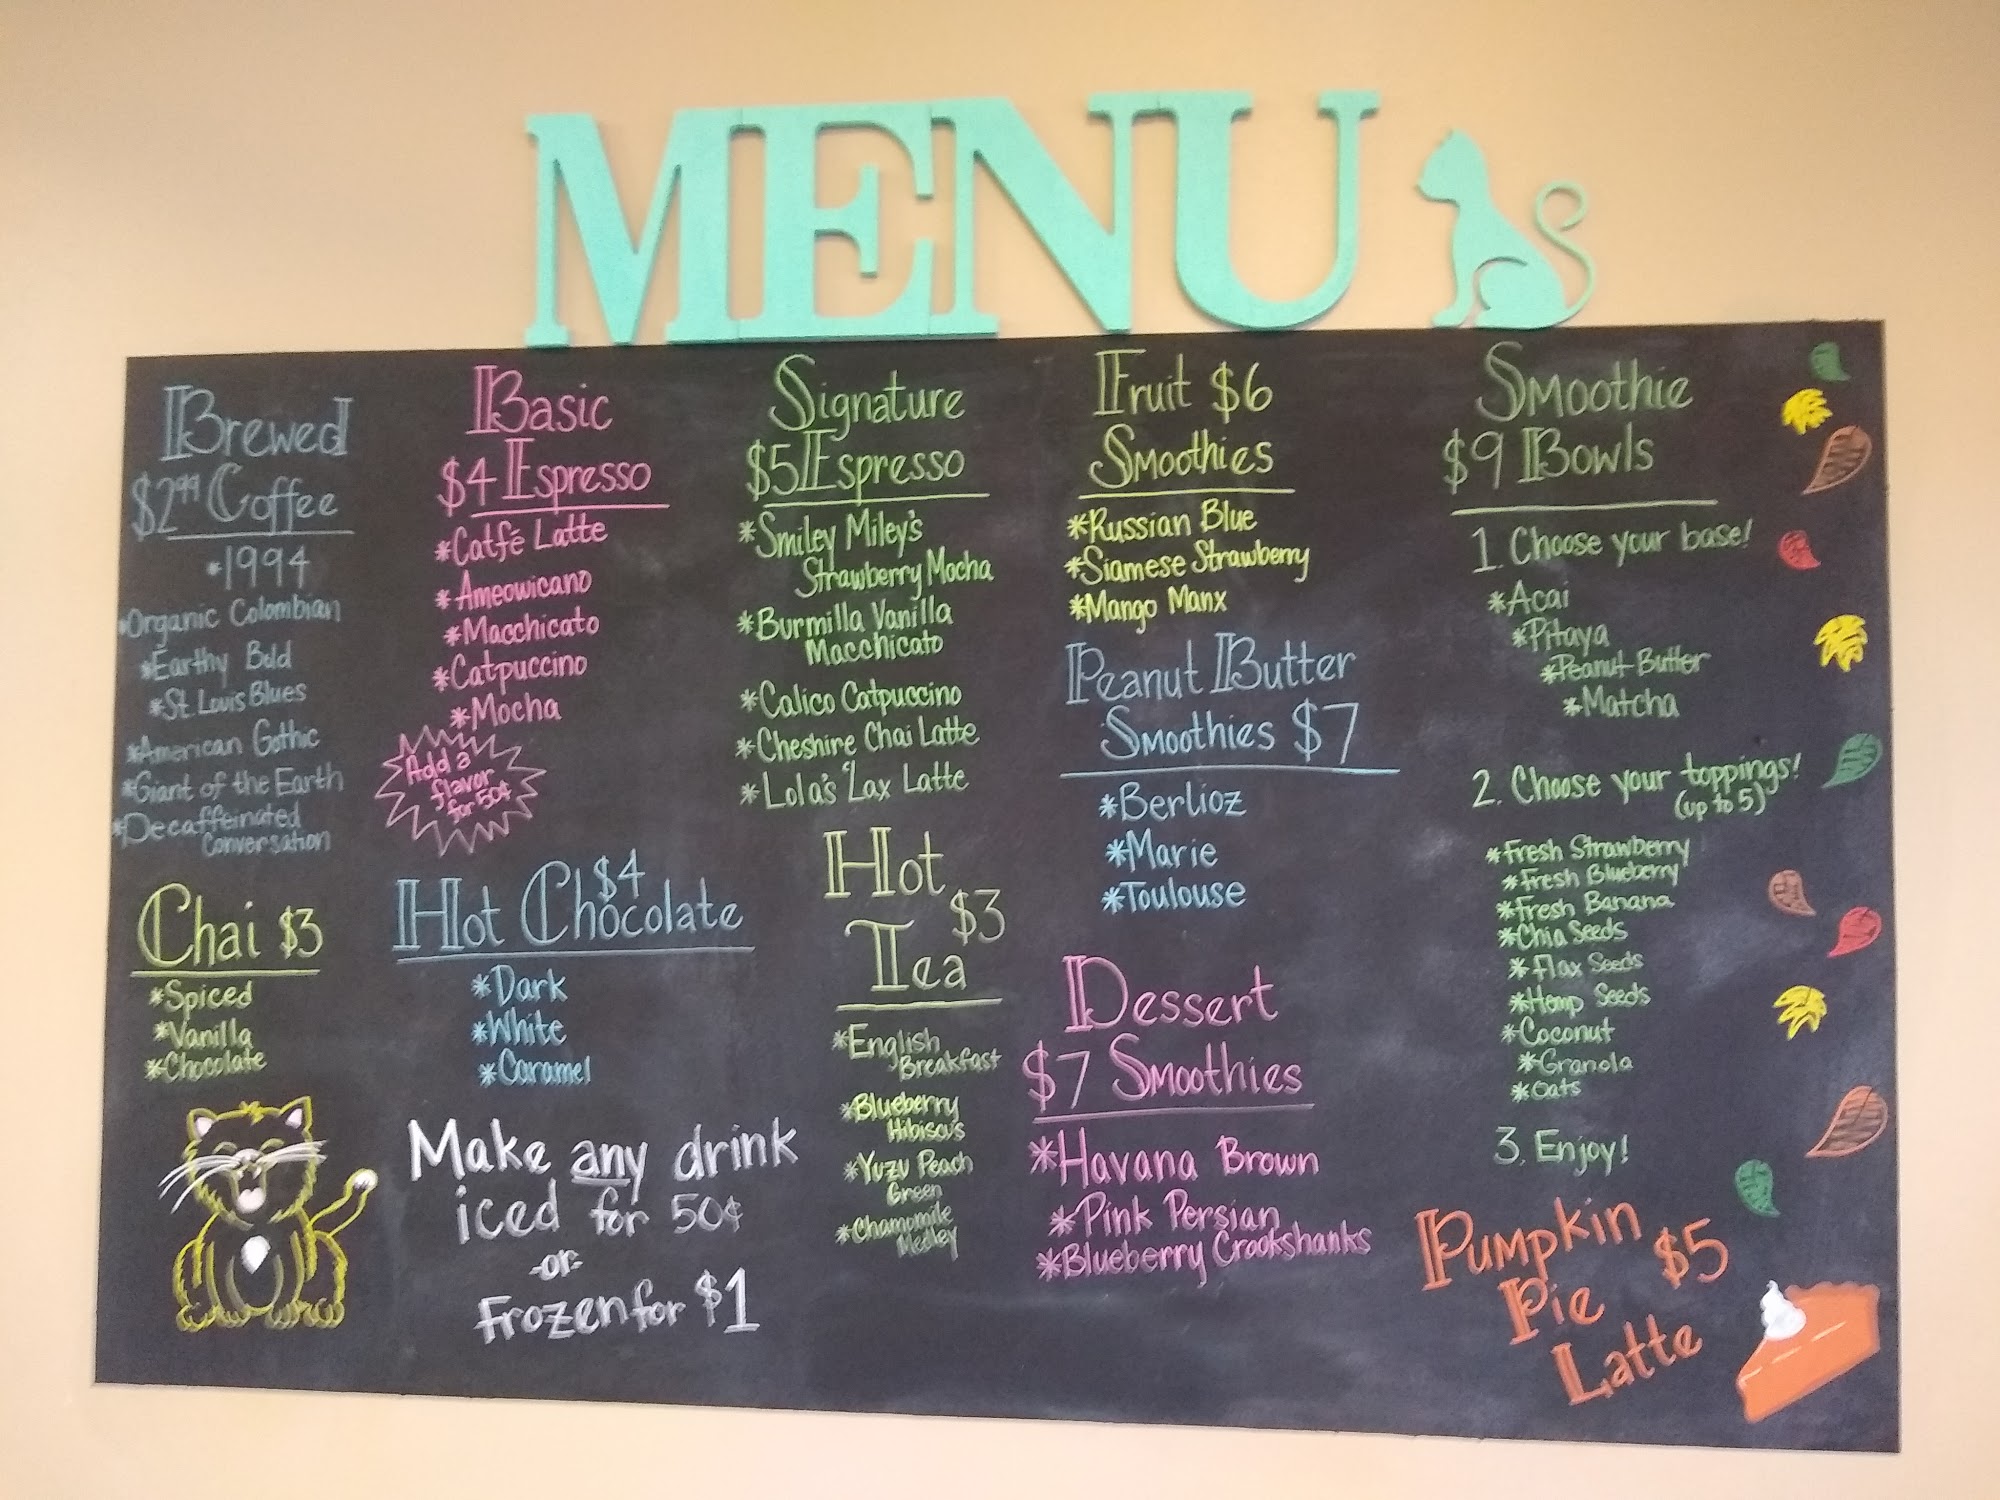 MENU
Brewed
$2.99 Coffee
*1994
*Organic Colombian
*Earthy Bold
*St. Louis Blues
*American Gothic
*Giant of the Earth
*Decaffeinated
Conversation
Chai $3
*Spiced
*Vanilla
*Chocolate
Basic
$4 Espresso
*Catfé Latte
*Ameowicano
*Macchicato
*Catpuccino
*Mocha
Add a
flavor
for 50¢
$4
Hot Chocolate
*Dark
*White
*Caramel
Make any drink
iced for 50¢
-or-
Frozen for $1
Signature
$5 Espresso
*Smiley Miley's
Strawberry Mocha
*Burmilla Vanilla
Macchicato
*Calico Catpuccino
*Cheshire Chai Latte
*Lola's 'Lax Latte
Hot
$3
Tea
*English
Breakfast
*Blueberry
Hibiscus
*Yuzu Peach
Green
*Chamomile
Medley
Fruit $6
Smoothies
*Russian Blue
*Siamese Strawberry
*Mango Manx
Peanut Butter
Smoothies $7
*Berlioz
*Marie
*Toulouse
Dessert
$7 Smoothies
*Havana Brown
*Pink Persian
*Blueberry Crookshanks
Smoothie
$9 Bowls
1. Choose your base!
*Acai
*Pitaya
*Peanut Butter
*Matcha
2. Choose your toppings!
(up to 5)
*Fresh Strawberry
*Fresh Blueberry
*Fresh Banana
*Chia Seeds
*Flax Seeds
*Hemp Seeds
*Coconut
*Granola
*Oats
3. Enjoy!
Pumpkin
Pie $5
Latte